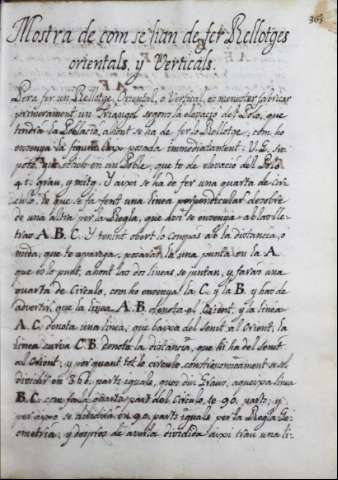 363
Mostra de com se han de fer Rellotges
orientals, y Verticals.
Pera fer un Rellotge Oriental, o Vertical, es menester fabricar
primerament un Triangol segons la elevacio del Polo, que
tendra la Poblacio, ahont se ha de fer lo Rellotge, com ho
ensenya la figura posada immediatament: V.G. su-
posat que estich en un Poble, que te de elevacio del Polo
41. graus, y mitg. Y axi se ha de fer una quarta de Cir-
culo, lo que se fa fent una linea perpendicular desobre
de una altra per la Regla, que aqui se ensenya ab las lle-
tras A. B. C. Y tenint obert lo Compas ab la distancia, o
mida, que te aparega, posaras la una punta en la A,
que es lo punt, ahont las dos lineas se juntan, y faras una
quarta de Circulo, com ho ensenya la C. y la B. y has de
advertir, que la linea A. B. denota al Orient, y la linea
A. C. denota una linea, que baxa del Zenit al Orient, la
linea curva C. B. denota la distancia, que hi ha del Zenit
al Orient, y per quant tot lo circulo, se sol
dividir en 360. parts iguals, que son Graus, aquexa linea
B. C. com fa la quarta part del Circulo, te 90. parts; y
per axo se dividira en 90. parts iguals per la Regla Ge-
ometria; y despres de averla dividida axi trau una li-